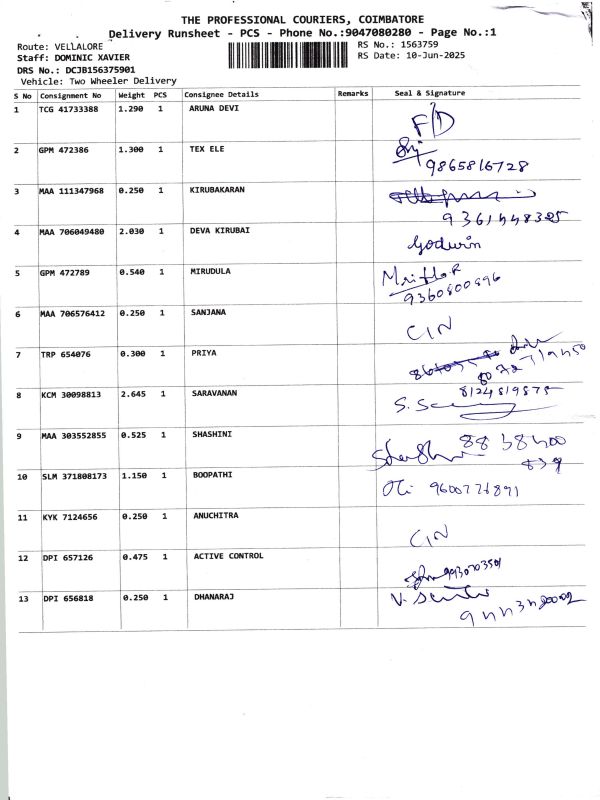 THE PROFESSIONAL COURIERS, COIMBATORE
Delivery Runsheet - PCS - Phone No.:9047080280 - Page No.:1
Route: VELLALORE
RS No.: 1563759
Staff: DOMINIC XAVIER
RS Date: 10-Jun-2025
DRS No.: DCJB156375901
Vehicle: Two Wheeler Delivery
S No Consignment No Weight PCS Consignee Details Remarks Seal & Signature
1 TCG 41733388 1.290 1 ARUNA DEVI F/D
2 GPM 472386 1.300 1 TEX ELE
9865816728
3 MAA 111347968 0.250 1 KIRUBAKARAN
4 MAA 706049480 2.030 1 DEVA KIRUBAI Godwin
5 GPM 472789 0.540 1 MIRUDULA
9360800896
6 MAA 706576412 0.250 1 SANJANA CIN
7 TRP 654076 0.300 1 PRIYA
8 KCM 30098813 2.645 1 SARAVANAN 8124819875
9 MAA 303552855 0.525 1 SHASHINI
10 SLM 371808173 1.150 1 BOOPATHI 9600776891
11 KYK 7124656 0.250 1 ANUCHITRA CIN
12 DPI 657126 0.475 1 ACTIVE CONTROL
13 DPI 656818 0.250 1 DHANARAJ